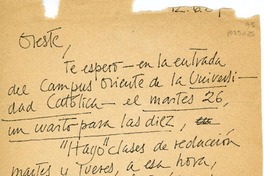 Oreste,
Te espero — en la entrada
del Campus Oriente de la Universi-
dad Católica — el martes 26,
un cuarto para las diez,
"Hago" clases de redacción
martes y jueves, a esa hora,